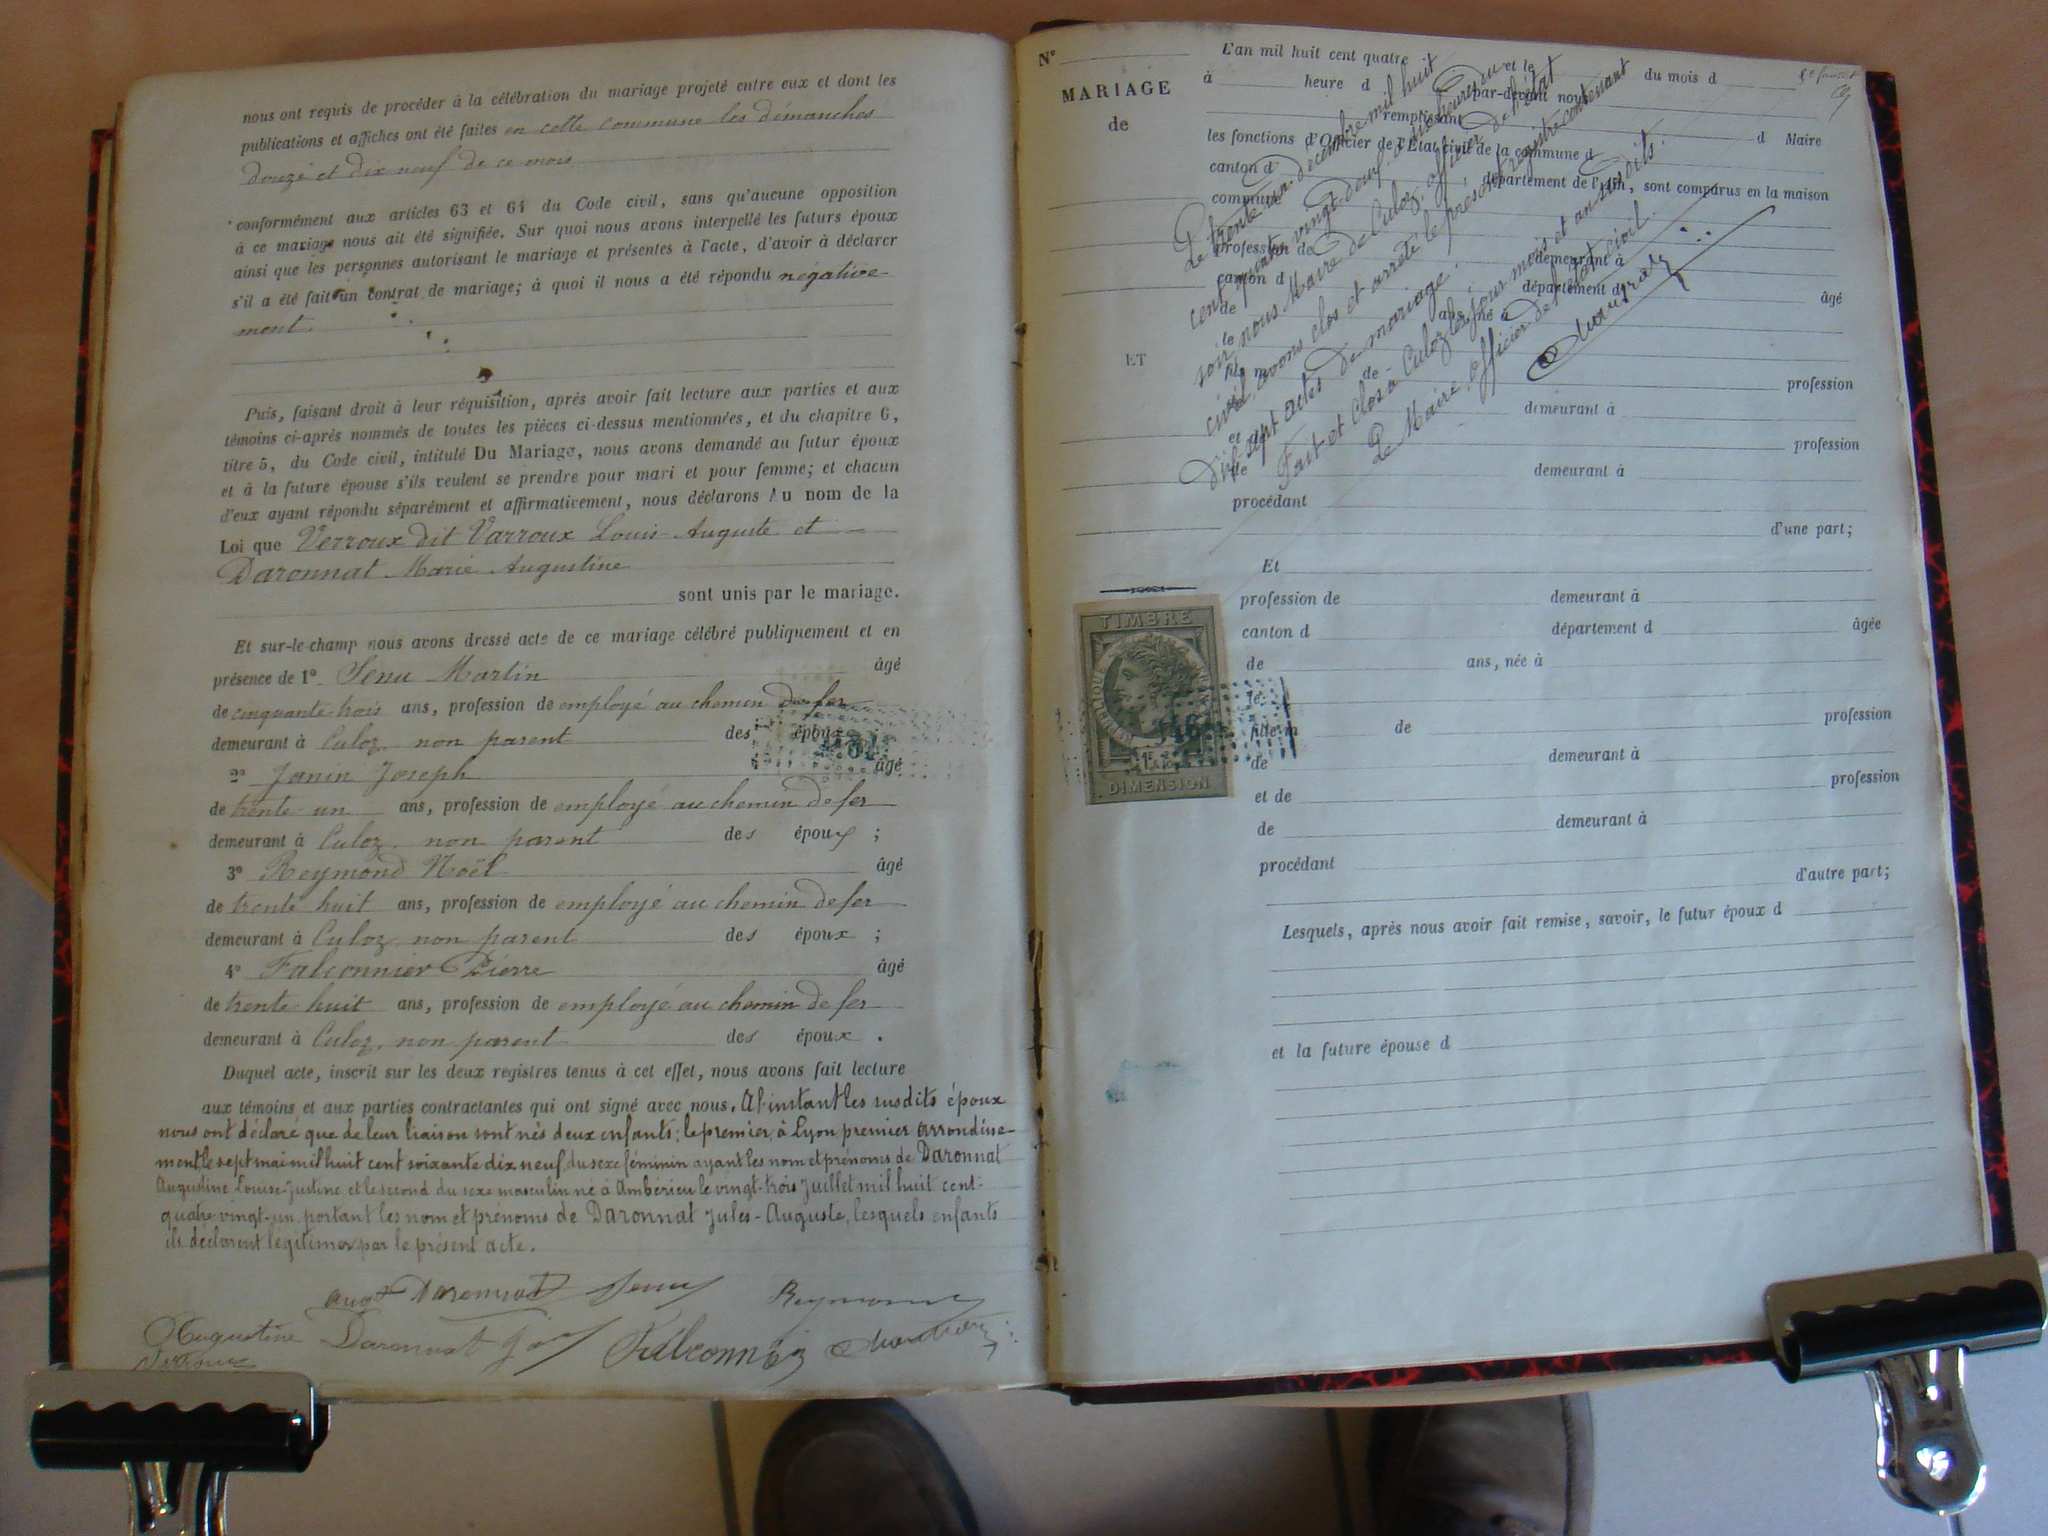 nous ont requis de procéder à la célébration du mariage projeté entre eux et dont les
publications et affiches ont été faites en cette commune les démanches
douze et dix neuf de ce mois
conformément aux articles 63 et 64 du Code civil, sans qu'aucune opposition
à ce mariage nous ait été signifiée. Sur quoi nous avons interpellé les futurs époux
ainsi que les personnes autorisant le mariage et présentes à l'acte, d'avoir à déclarer
s'il a été fait un contrat de mariage; à quoi il nous a été répondu négative
ment.
Puis, faisant droit à leur réquisition, après avoir fait lecture aux parties et aux
témoins ci-après nommés de toutes les pièces ci-dessus mentionnées, et du chapitre 6,
titre 5, du Code civil, intitulé Du Mariage, nous avons demandé au futur époux
et à la future épouse s'ils veulent se prendre pour mari et pour femme; et chacun
d'eux ayant répondu séparément et affirmativement, nous déclarons Au nom de la
Loi que Verroux dit Varroux Louis Auguste et
Daronnat Marie Augustine
sont unis par le mariage.
Et sur-le-champ nous avons dressé acte de ce mariage célébré publiquement et en
présence de 1° Senu Martin âgé
de cinquante-trois ans, profession de employé au chemin de fer
demeurant à Culoz, non parent des époux
2° Janin Joseph âgé
de trente-un ans, profession de employé au chemin de fer
demeurant à Culoz, non parent des époux ;
3° Reymond Noël âgé
de trente huit ans, profession de employé au chemin de fer
demeurant à Culoz, non parent des époux ;
4° Falconnier Pierre âgé
de trente-huit ans, profession de employé au chemin de fer
demeurant à Culoz, non parent des époux .
Duquel acte, inscrit sur les deux registres tenus à cet effet, nous avons fait lecture
aux témoins et aux parties contractantes qui ont signé avec nous. Al'instant les susdits époux
nous ont déclaré que de leur liaison sont nés deux enfants; le premier, à Lyon premier arrondisse-
ment, le sept mai mil huit cent soixante dix neuf, du sexe féminin ayant les nom et prénoms de Daronnat
Augustine Louise Justine et le second du sexe masculin né à Ambérieu le vingt-trois Juillet mil huit cent-
quatre-vingt-un, portant les nom et prénoms de Daronnat Jules-Auguste, lesquels enfants
ils déclarent légitimer par le présent acte.
Augte Daronnat Senu Reymond
Augustine Daronnat Falconnier
Verroux
N°
MARIAGE
de
ET
L'an mil huit cent quatre et le du mois d
à heure d par-devant nous
remplissant
les fonctions d'Officier de l'Etat civil de la commune d d Maire
canton d département de l'Ain, sont comparus en la maison
commune
profession de demeurant à
canton d département d âgé
de ans, né à
le
fils m de profession
demeurant à
et de profession
de demeurant à
procédant
d'une part;
Le trente un décembre mil huit
cent quatre vingt-deux, à heures du
soir nous Maire de Culoz, officier de l'état
civil, avons clos et arrêté le présent registre contenant
Dix sept actes de mariage.
Fait et clos à Culoz les jour mois et an susdits.
Le Maire, officier de l'état civil.
TIMBRE
DIMENSION
Et
profession de demeurant à
canton d département d âgée
de ans, née à
le
fille m de profession
de demeurant à
et de profession
de demeurant à
procédant
d'autre part;
Lesquels, après nous avoir fait remise, savoir, le futur époux d
et la future épouse d